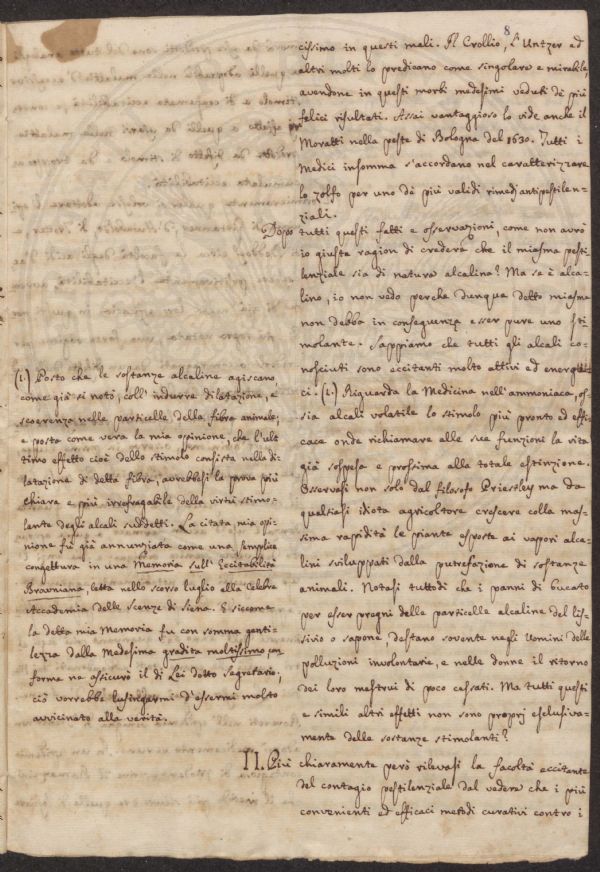 8
cissimo in questi mali. Il Crollio, l'Untzer ed
altri molti lo predicano come singolare e mirabile,
avendone in questi morbi medesimi veduti di più
felici risultati. Assai vantaggioso lo vide anche il
Moratti nella peste di Bologna del 1630. Tutti i
Medici insomma s'accordano nel caratterizzare
lo zolfo per uno de più validi rimedj antipestilen-
ziali.
Dopo tutti questi fatti e osservazioni, come non avrò
io giusta ragion di credere che il miasma pesti-
lenziale sia di natura alcalina? Ma se è alca-
lino, io non vedo perche dunque detto miasma
non debba in conseguenza esser pure uno sti-
molante. Sappiamo che tutti gli alcali co-
nosciuti sono eccitanti molto attivi ed energeti-
ci. (1.) Riguarda la Medicina nell'ammoniaca, os-
sia alcali volatile lo stimolo più pronto ed effi-
cace onde richiamare alle sue funzioni la vita
già sospesa e prossima alla totale estinzione.
Osservasi non solo dal filosofo Priestley ma da
qualsiasi idiota agricoltore crescere colla mas-
sima rapidità le piante esposte ai vapori alca-
lini sviluppati dalla putrefazione di sostanze
animali. Notasi tuttodì che i panni di bucato
per esser pregni delle particelle alcaline del lis-
sivio o sapone, destano sovente negli Uomini delle
polluzioni involontarie, e nelle donne il ritorno
dei loro mestrui di poco cessati. Ma tutti questi
e simili altri effetti non sono proprj esclusiva-
mente delle sostanze stimolanti?
II. Più chiaramente però rilevasi la facoltà eccitante
del contagio pestilenziale dal vedere che i più
convenienti ed efficaci metodi curativi contro i
(1.) Posto che le sostanze alcaline agiscano,
come già si notò, coll'indurre dilatazione, e
scoerenza nelle particelle della fibra animale;
e posta come vera la mia oppinione, che l'ul-
timo effetto cioè dello stimolo consista nella di-
latazione di detta fibra; avrebbesi la prova più
chiara e più irrefragabile della virtù stimo-
lante degli alcali suddetti. La citata mia opi-
nione fù già annunziata come una semplice
congettura in una Memoria sull'Eccitabilità
Browniana, letta nello scorso luglio alla Celebre
Accademia delle Scenze di Siena. E siccome
la detta mia Memoria fu con somma genti-
lezza dalla Medesima gradita moltissimo, con-
forme ne assicurò il di Lei dotto Segretario;
ciò vorrebbe lusingarmi d'essermi molto
avvicinato alla verità.